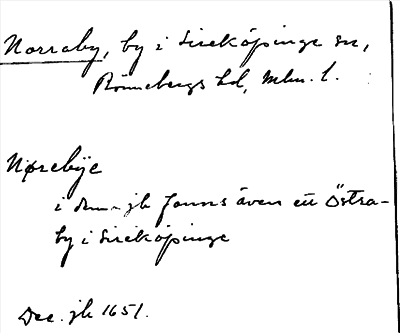 Norraby, by i Sireköpinge sn,
Rönnebergs hd, Mlm. l.
Nørebÿe
i denna jb fanns även ett Östra-
by i Sireköpinge
Dec. jb 1651.